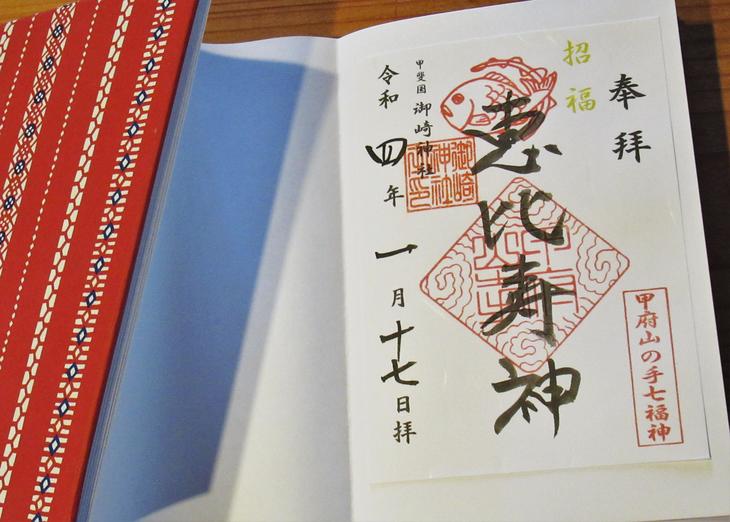 奉拝
招福
恵比寿神
甲府山の手七福神
甲斐国 御崎神社
御崎神社
令和四年一月十七日拝